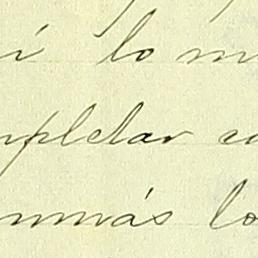 í lo m
mpletar co
nmás lo